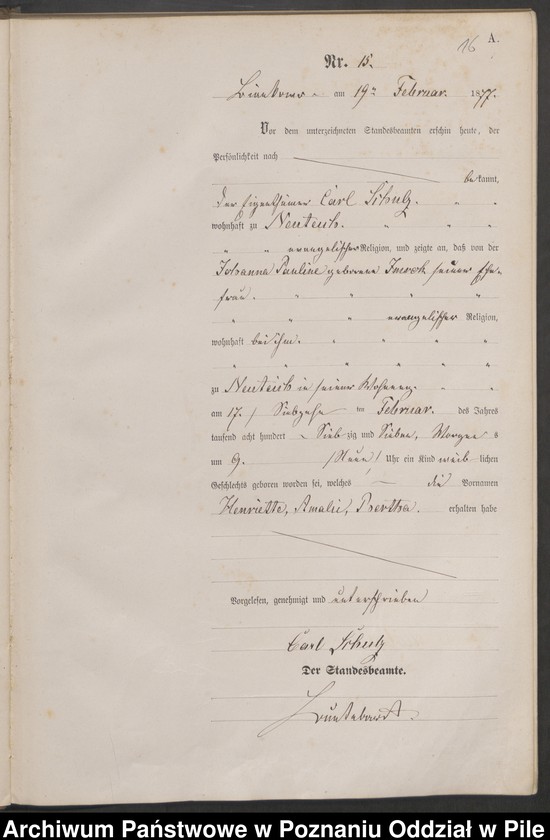 16
A.
Nr. 15.
am 19ten Februar 1877.
Vor dem unterzeichneten Standesbeamten erschien heute, der
Persönlichkeit nach
bekannt,
der Eigenthümer Carl Schulz.
wohnhaft zu Neuteich.
evangelischer Religion, und zeigte an, daß von der
Johanna Pauline geborene seiner Ehe-
frau.
evangelischer Religion,
wohnhaft bei ihm.
zu Neuteich in seiner Wohnung.
am 17. / Siebzehn ten Februar. des Jahres
tausend acht hundert Siebzig und Sieben, Morgens
um 9. /Neun/ Uhr ein Kind weiblichen
Geschlechts geboren worden sei, welches die Vornamen
Henriette, Amalie, Bertha. erhalten habe
Vorgelesen, genehmigt und unterschrieben
Carl Schulz
Der Standesbeamte.
Archiwum Państwowe w Poznaniu Oddział w Pile